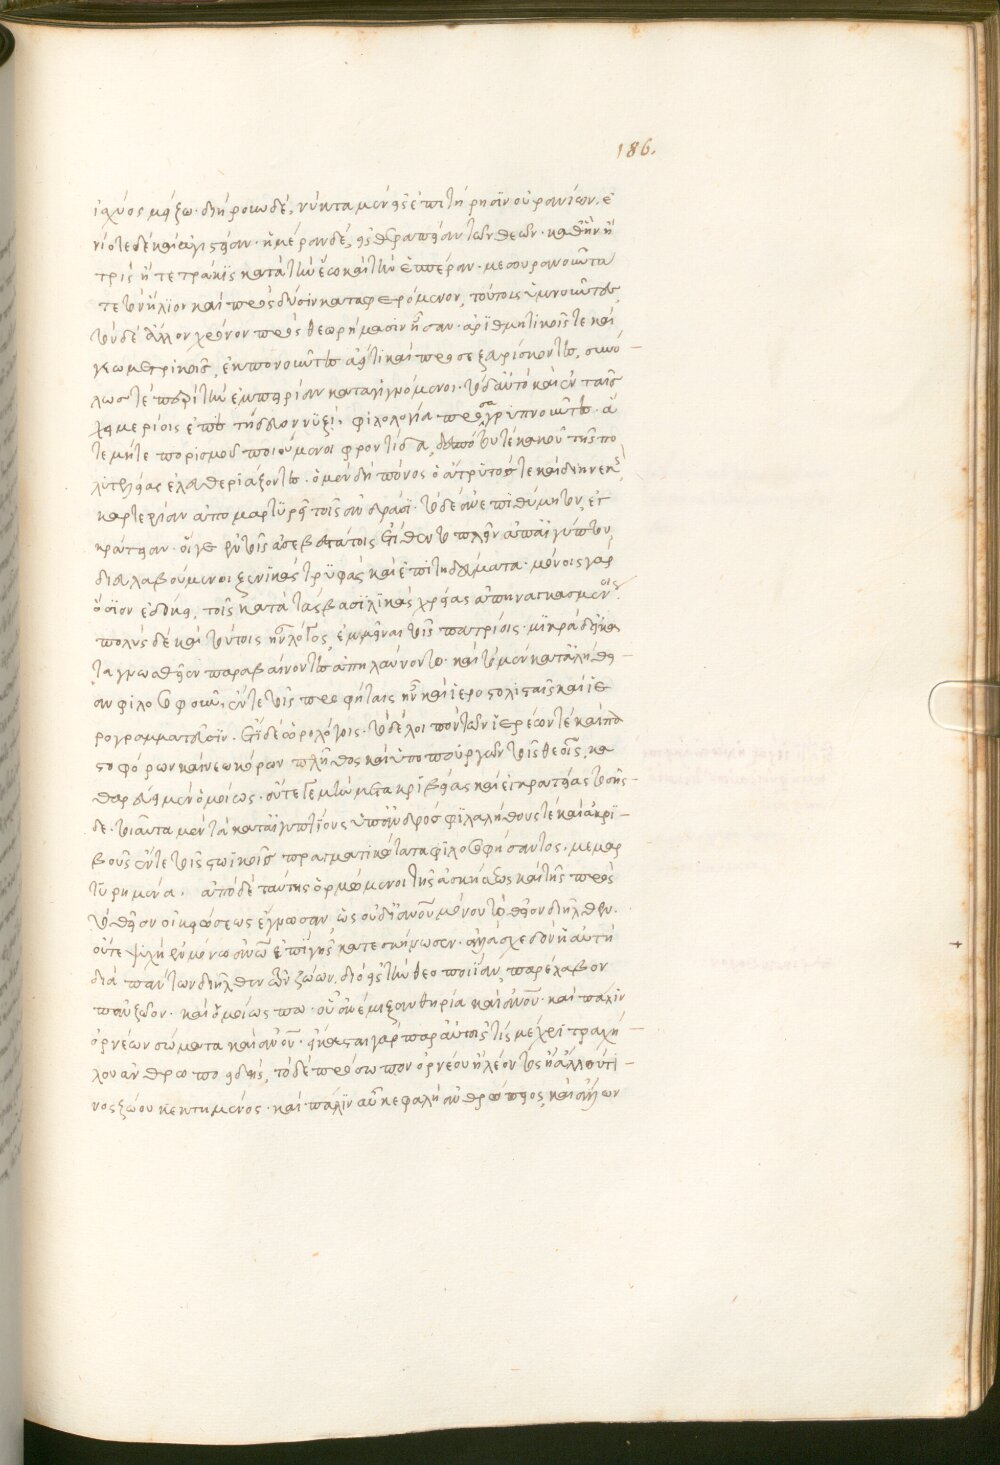 ἰσχύος μείζω. διῄρουν δὲ, νύκτα μὲν εἰς ἐπιτήρησιν οὐρανίων, ἐ
νίοτε δὲ καὶ ἁγιστείαν. ἡμέραν δὲ, εἰς θεραπείαν τῶν θεῶν. καθ' ἣν ἢ
τρὶς ἢ τετράκϊς κατὰ τὴν ἕω καὶ τὴν ἑσπέραν. μεσουρανοῦντα
τε τὸν ἥλϊον καὶ πρὸς δύσιν καταφερόμενον, τούτοις ὑμνοῦντες,
τὸν δὲ ἄλλον χρόνον πρὸς θεωρήμασιν ἦσαν. ἀρϊθμητικοῖς τε καὶ
γεωμετρικοῖς, ἐκπονοῦντες ἀεί τι καὶ προσεξευρίσκοντες, συνό –
λως τὲ περὶ τὴν ἐμπειρίαν καταγιγνόμενοι. τὸ δ' αὐτὸ καὶ ἐν ταῖς
χειμερίοις νϋξὶ. φιλολογία προσαγρϋπνοῦντες. ἅ
τε μήτε πορισμοῦ ποιούμενοι φροντίδα, δεσπότου τὲ κακοῦ τῆς πο
λϋτελείας ἐλευθεριάζοντες. ὁ μὲν δὴ πόνος ὁ ἄτρϋτός τε καὶ διηνεκὴς,
καρτερίαν ἀπομαρτϋρεῖ τοῖς ἀνδράσϊ. τὸ δὲ ἀνεπιθύμητον, ἐγ
κράτειαν. οἵ γε ἐν τοῖς ἀσεβεστάτοις ἐτίθεντο πλεῖν ἀπ' αἰγύπτου,
διευλαβούμενοι ξενϊκὰς τρϋφὰς καὶ ἐπιτηδεύματα. μόνοις γὰρ
ὅσϊον ἐδόκει, τοῖς κατὰ τὰς βασϊλϊκὰς χρείας ἀπηναγκασμένοις.
πολὺς δὲ καὶ τούτοις ἦν λόγος, ἐμμεῖναι τοῖς πατρίοις. μϊκρὰ δὲ εἰ κα
ταγνωσθεῖεν παραβαίνοντες ἀπηλαύνοντο. καὶ τὸ μὲν κατ' ἀλήθει –
αν φιλοσοφοῦν, ἔν τε τοῖς προφήταις ἦν καὶ ἱεροστολισταῖς καὶ ἱε
ρογραμματεῦσϊν. ἔτϊ δὲ ὡρολόγοις. τὸ δὲ λοιπὸν τῶν ἱερέων τὲ καὶ πα
στοφόρων καὶ νεωκόρων πλῆθος καὶ ὑποπουργῶν τοῖς θεοῖς, κα
θαρεύει μὲν ὁμοίως. οὔτε γε μὴν μετ' ἀκρϊβείας καὶ ἐγκρατείας τοσῆς –
δε. τοιαῦτα μὲν τὰ κατ' αἰγυπτίους ὑπ' ἀνδρὸς φϊλαλήθους τὲ καὶ ἀκρϊ –
βοῦς ἔν τε τοῖς στωϊκοῖς πραγματικώτατα φϊλοσοφήσαντος. μεμαρ
τϋρημένα. ἀπὸ δὲ ταύτης ὁρμώμενοι τῆς ἀσκήσεως καὶ τῆς πρὸς
τὸ θεῖον οἰκειώσεως ἔγνωσαν, ὡς οὐ δι' ἀνου μόνου τὸ θεῖον διῆλθεν.
οὔτε ψϋχὴ ἐν μόνῳ ἀνω ἐπὶ γῆς κατεσκήνωσεν. ἀλλὰ σχεδὸν ἡ αὐτὴ
διὰ πάντων διῆλθε τῶν ζώων, διὸ εἰς τὴν θεοποιΐαν, παρέλαβον
πᾶν ζῶον. καὶ ὁμοίως που ἀνέμιξαν θηρία καὶ ἀνους. καὶ πάλϊν
ὀρνέων σώματα καὶ ἀνου. εἴκασται γὰρ παρ' αὐτοῖς τὶς μέχρι τραχή –
λου ἀνθρωποειδὴς, τὸ δὲ πρόσωπον ὀρνέου ἢ λέοντος ἢ ἄλλου τϊ –
νὸς ζώου κεκτημένος. καὶ πάλϊν αὖ κεφαλὴ ἀνθρώπειος, καὶ ἄλλων